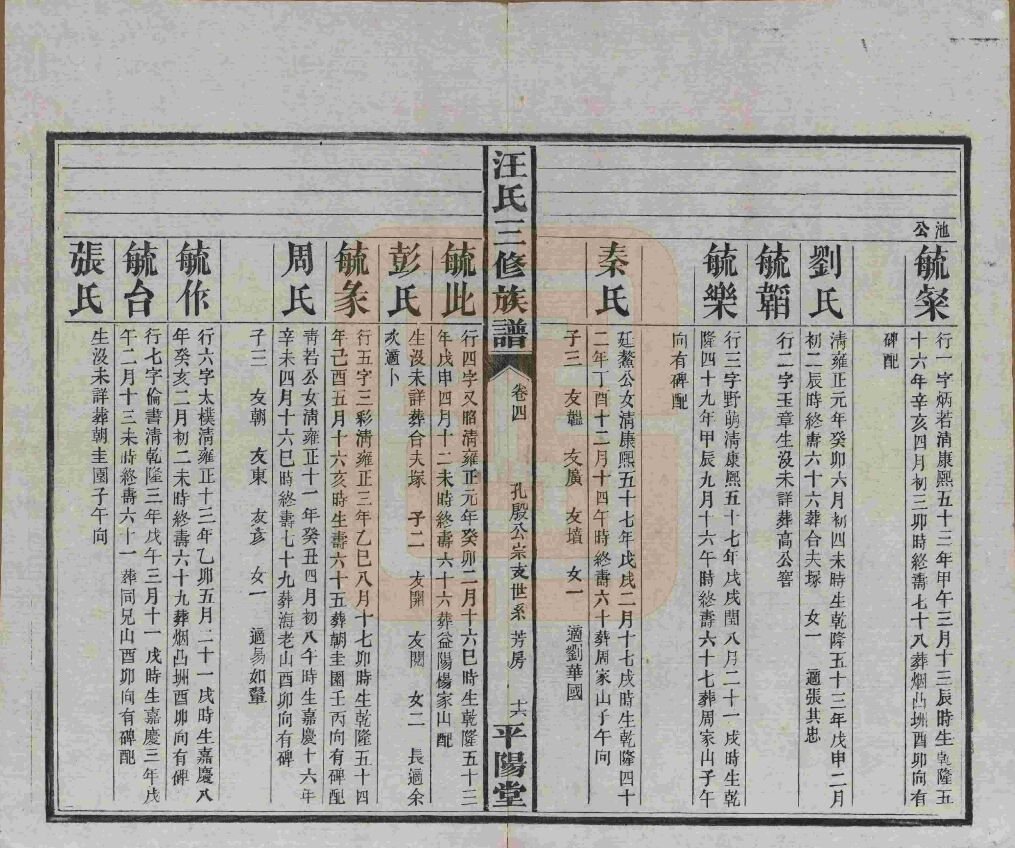 池公
毓粲
行一字炳若清康熙五十三年甲午三月十三辰時生乾隆五
十六年辛亥四月初三卯時終壽七十八葬烟凸坳酉卯向有
碑配
劉氏
清雍正元年癸卯六月初四未時生乾隆五十三年戊申二月
初二辰時終壽六十六葬合夫塚 女一 適張其忠
毓韜
行二字玉章生沒未詳葬高公窖
毓樂
行三字野萌清康熙五十七年戊戌閏八月二十一戌時生乾
隆四十九年甲辰九月十六午時終壽六十七葬周家山子午
向有碑配
秦氏
廷鰲公女清康熙五十七年戊戌二月十七戌時生乾隆四十
二年丁酉十二月十四午時終壽六十葬周家山子午向
子三 友龘 友廣 友墳 女一 適劉華國
汪氏三修族譜
卷四
孔殷公宗支世系 芳房
十六
平陽堂
毓此
行四字又昭清雍正元年癸卯二月十六巳時生乾隆五十三
年戊申四月十二未時終壽六十六葬益陽楊家山配
彭氏
生沒未詳葬合夫塚 子二 友開 友閣 女二 長適余
次適卜
毓彖
行五字三彩清雍正三年乙巳八月十七卯時生乾隆五十四
年己酉五月十六亥時生壽六十五葬朝圭園壬丙向有碑配
周氏
青若公女清雍正十一年癸丑四月初八午時生嘉慶十六年
辛未四月十六巳時終壽七十九葬海老山酉卯向有碑
子三 友朝 友東 友彥 女一 適易如鞏
毓作
行六字太樸清雍正十三年乙卯五月二十一戌時生嘉慶八
年癸亥二月初二未時終壽六十九葬烟凸坳酉卯向有碑
毓台
行七字倫書清乾隆三年戊午三月十一戌時生嘉慶三年戊
午二月十三未時終壽六十一葬同兄山酉卯向有碑配
張氏
生沒未詳葬朝圭園子午向